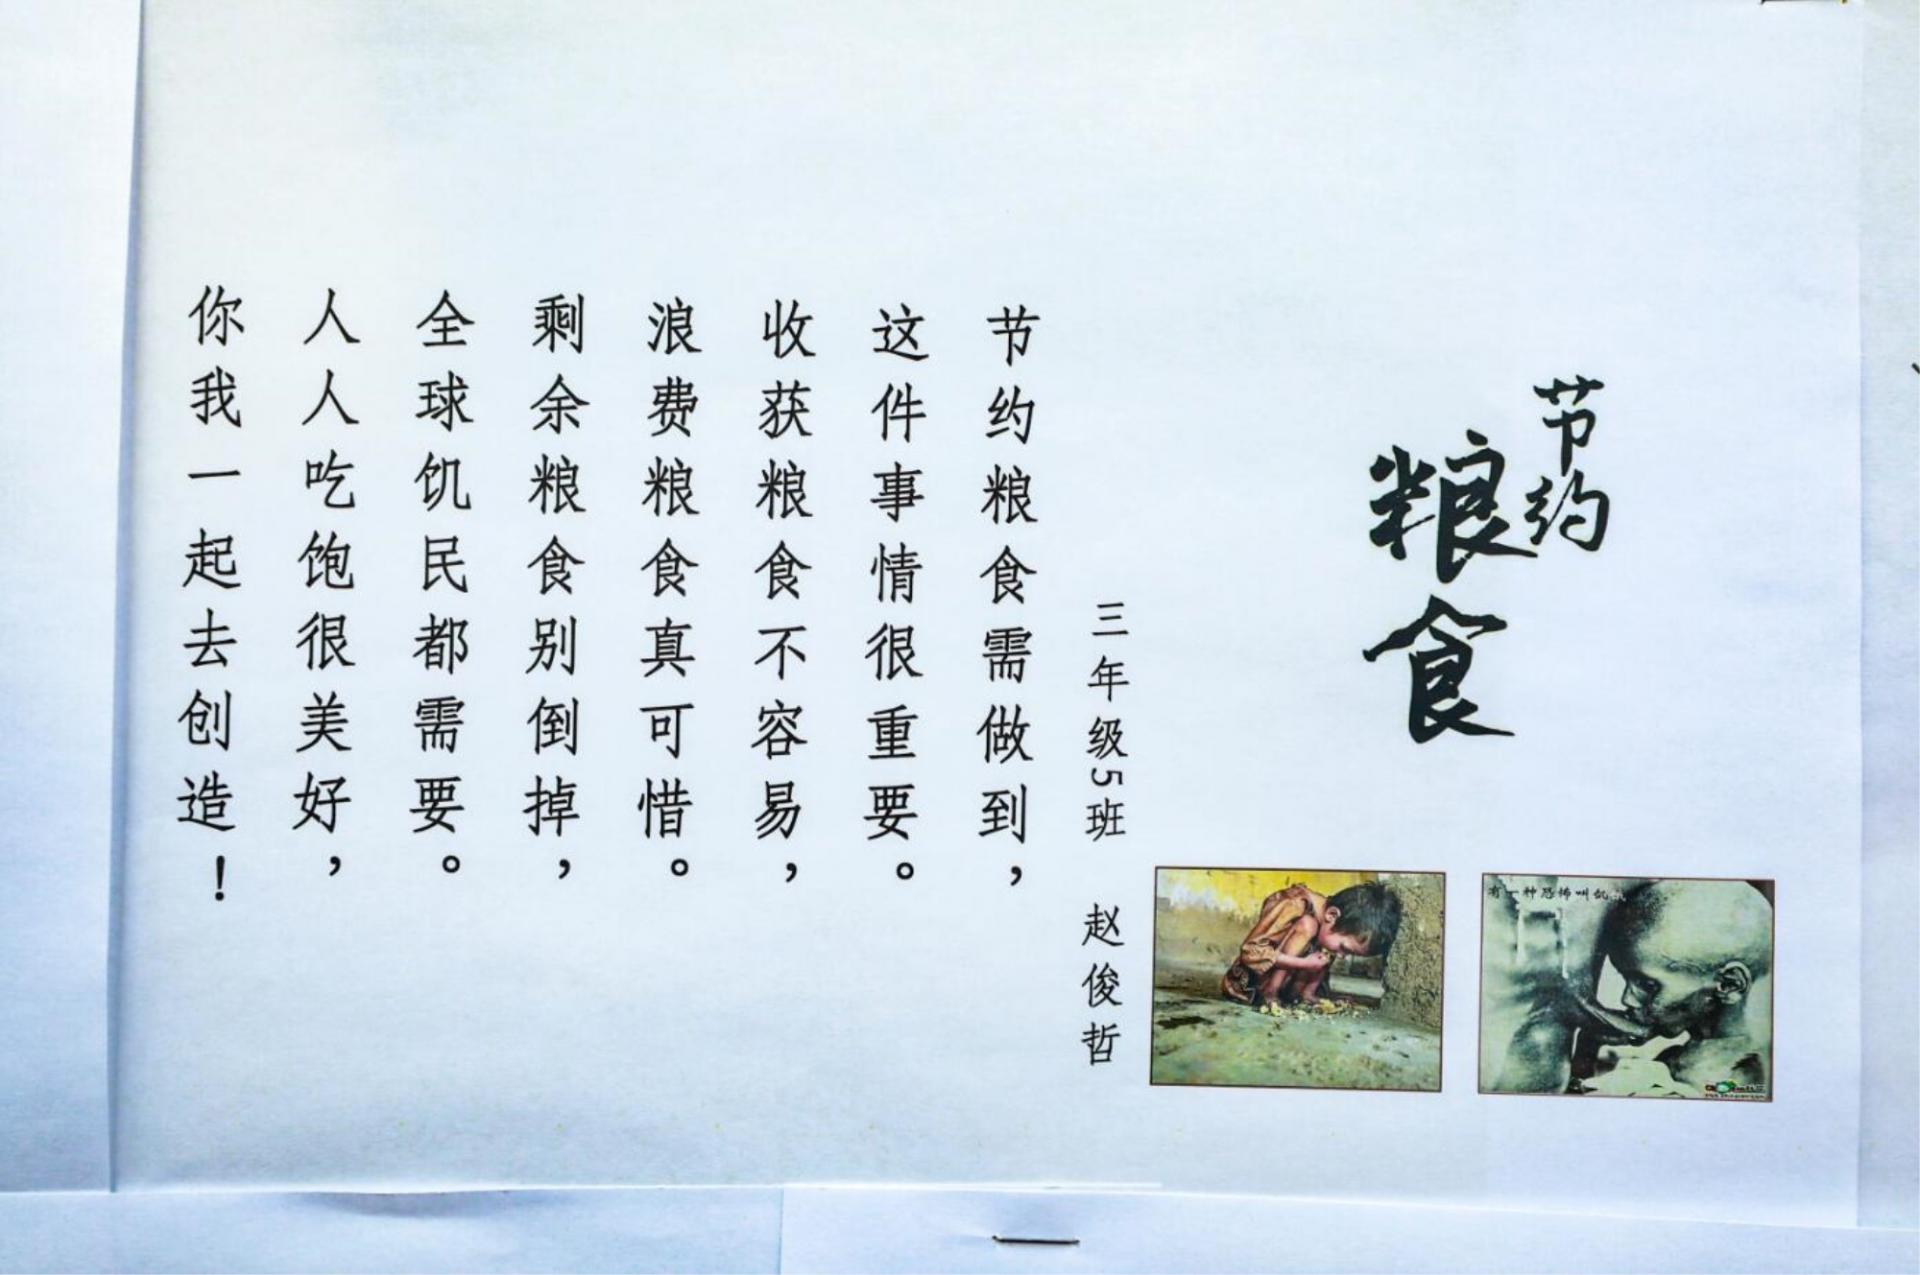 节约
粮食
三年级5班 赵俊哲
节约粮食需做到，
这件事情很重要。
收获粮食不容易，
浪费粮食真可惜。
剩余粮食别倒掉，
全球饥民都需要。
人人吃饱很美好，
你我一起去创造！
有一种恐怖叫饥